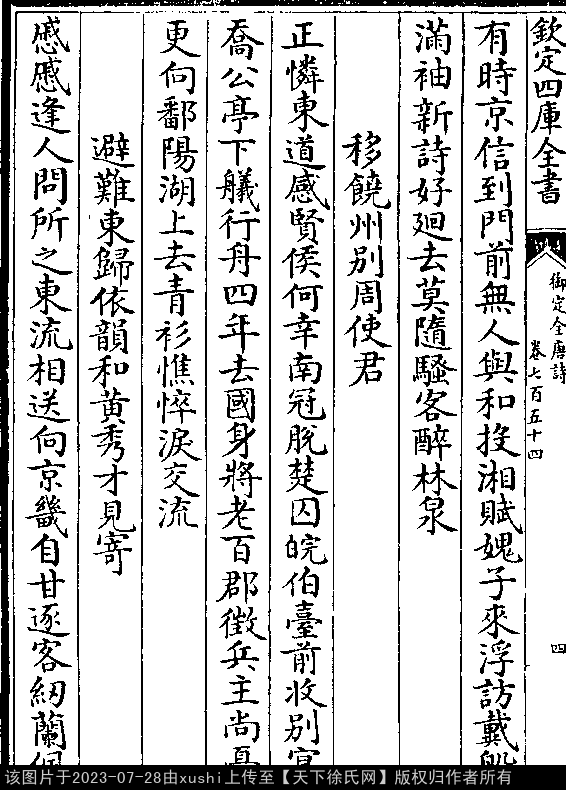 欽定四庫全書
御定全唐詩
卷七百五十四
四
有時京信到門前無人與和投湘賦媿子來浮訪戴
滿袖新詩好廻去莫隨騷客醉林泉
移饒州别周使君
正憐東道感賢侯何幸南冠脫楚囚皖伯臺前收别
喬公亭下艤行舟四年去國身將老百郡徵兵主尚
更向鄱陽湖上去青衫憔悴淚交流
避難東歸依韻和黄秀才見寄
慼慼逢人問所之東流相送向京畿自甘逐客紉蘭
该图片于2023-07-28由xushi上传至【天下徐氏网】版权归作者所有